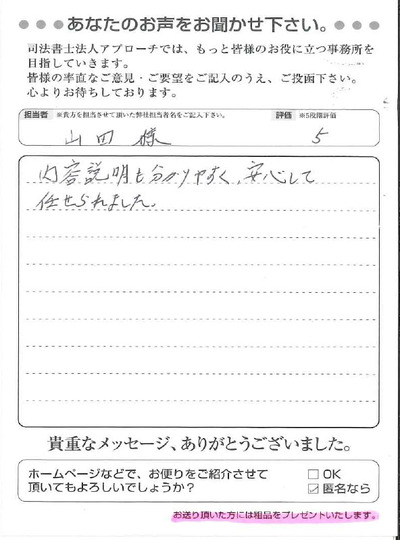 ●●●あなたのお声をお聞かせ下さい。●●●
司法書士法人アプローチでは、もっと皆様のお役に立つ事務所を
目指していきます。
皆様の率直なご意見・ご要望をご記入のうえ、ご投函下さい。
心よりお待ちしております。
担当者 ※貴方を担当させて頂いた弊社担当者名をご記入下さい。 評価 ※5段階評価
山田 様 5
内容説明も分かりやすく、安心して
任せられました。
貴重なメッセージ、ありがとうございました。
ホームページなどで、お便りをご紹介させて
頂いてもよろしいでしょうか?
□ OK
☑ 匿名なら
お送り頂いた方には粗品をプレゼントいたします。